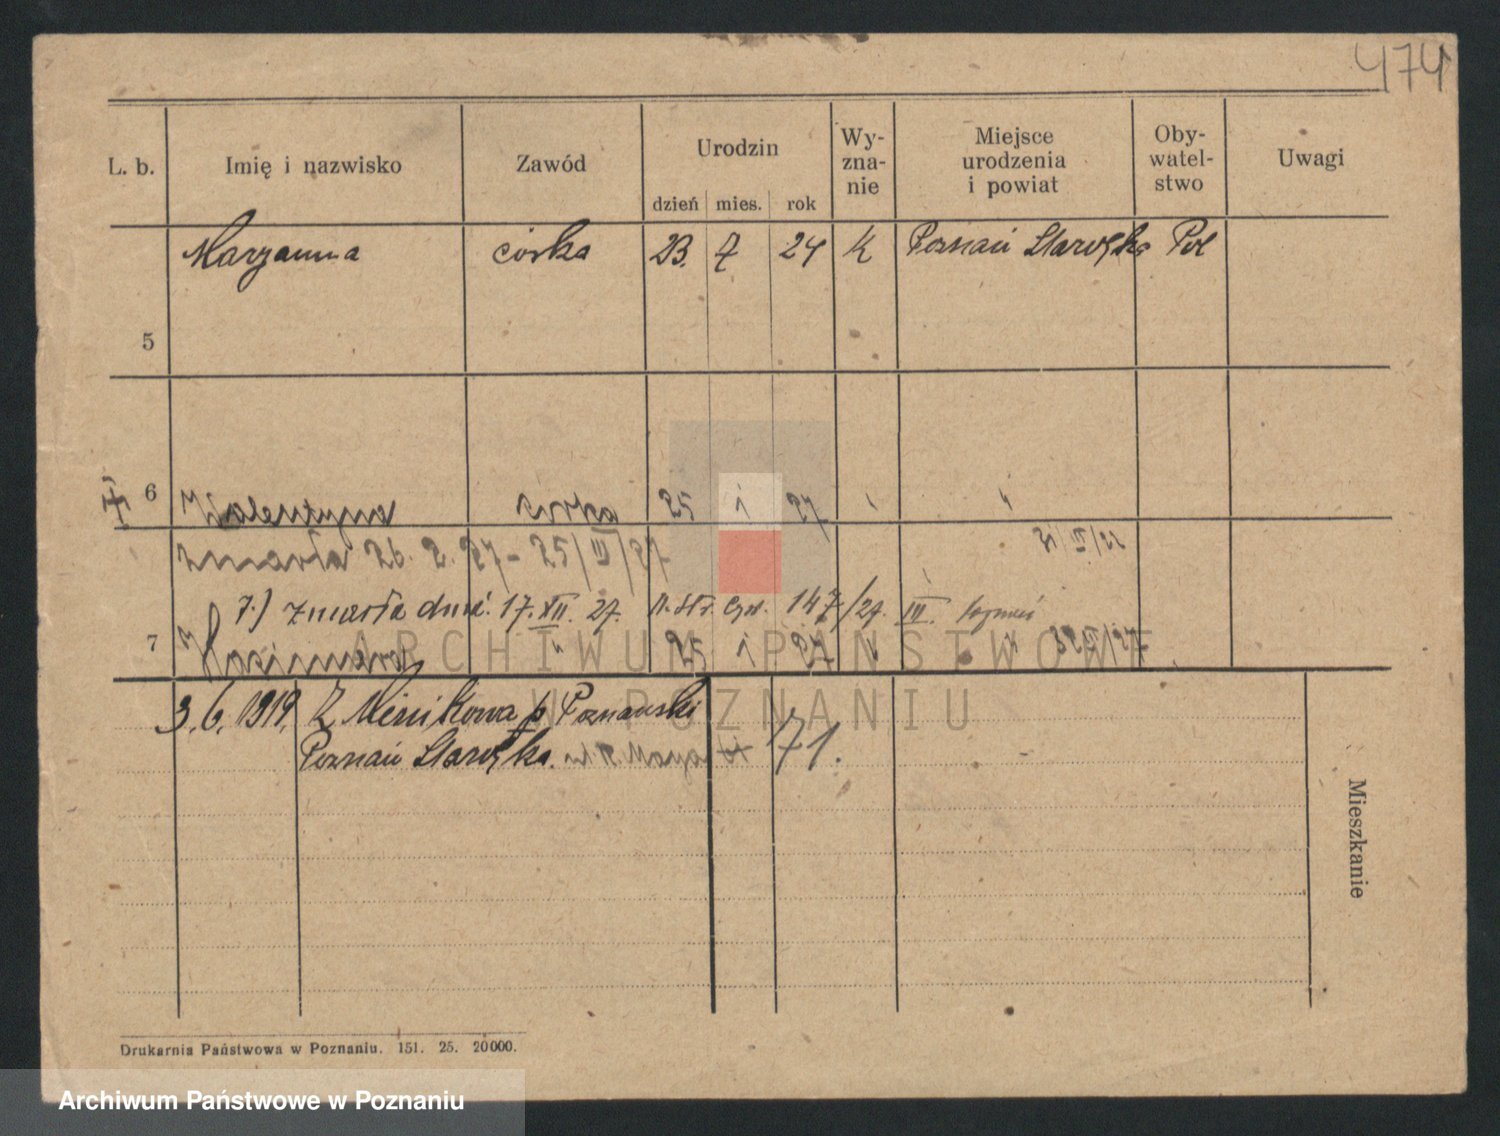 474
L. b. Imię i nazwisko Zawód Urodzin dzień mies. rok Wy-zna-nie Miejsce urodzenia i powiat Oby-watel-stwo Uwagi
5 Maryanna córka 23. 7 24 k Poznań Starołęka Pol
6 Walentyna córka 25 1 27 "
zmarła 26. 2. 27 - 25/III/27
7.) zmarła dnia 17. XII. 27. 147/27. III.
7 Kazimiera " 25 1 27 " "
3.6.1919. Z Minikowa p Poznański
Poznań Starołęka. 71.
Mieszkanie
ARCHIWUM PAŃSTWOWE
W POZNANIU
Drukarnia Państwowa w Poznaniu. 151. 25. 20000.
Archiwum Państwowe w Poznaniu